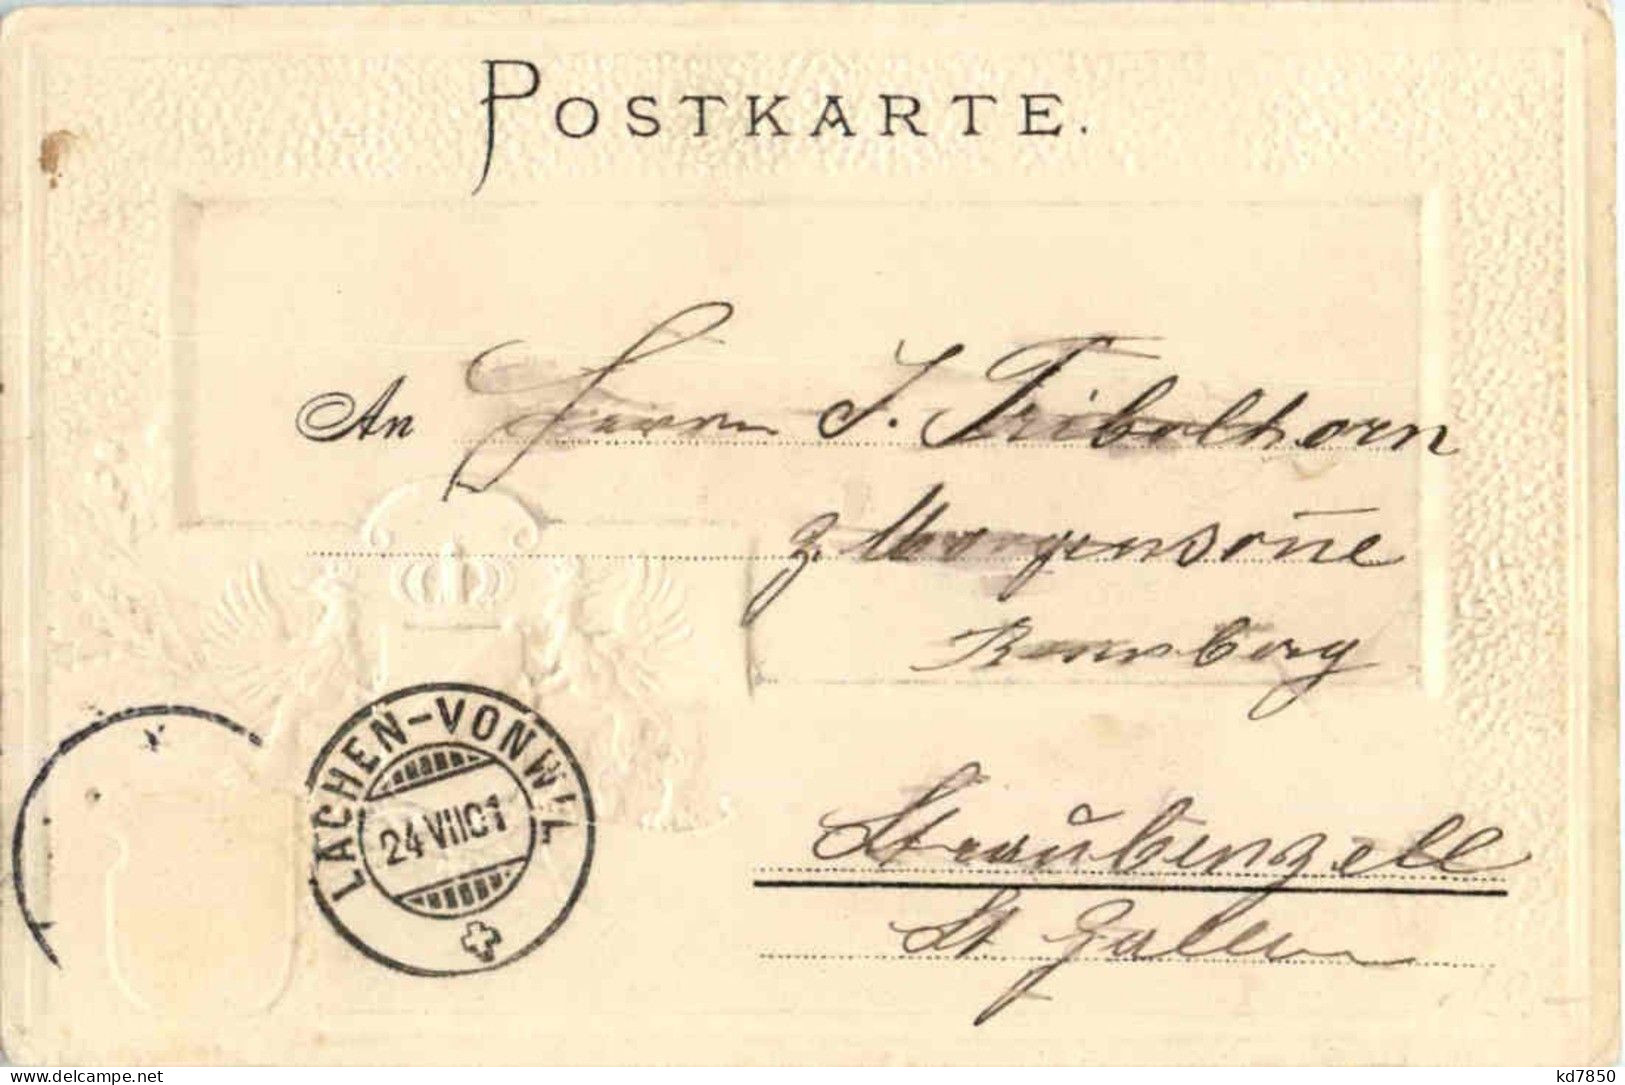 POSTKARTE.
An Herrn J. Tribelhorn
z. Morgensonne
Straubenzell
St Gallen
LACHEN-VONWIL
24 VII 01
kd7850